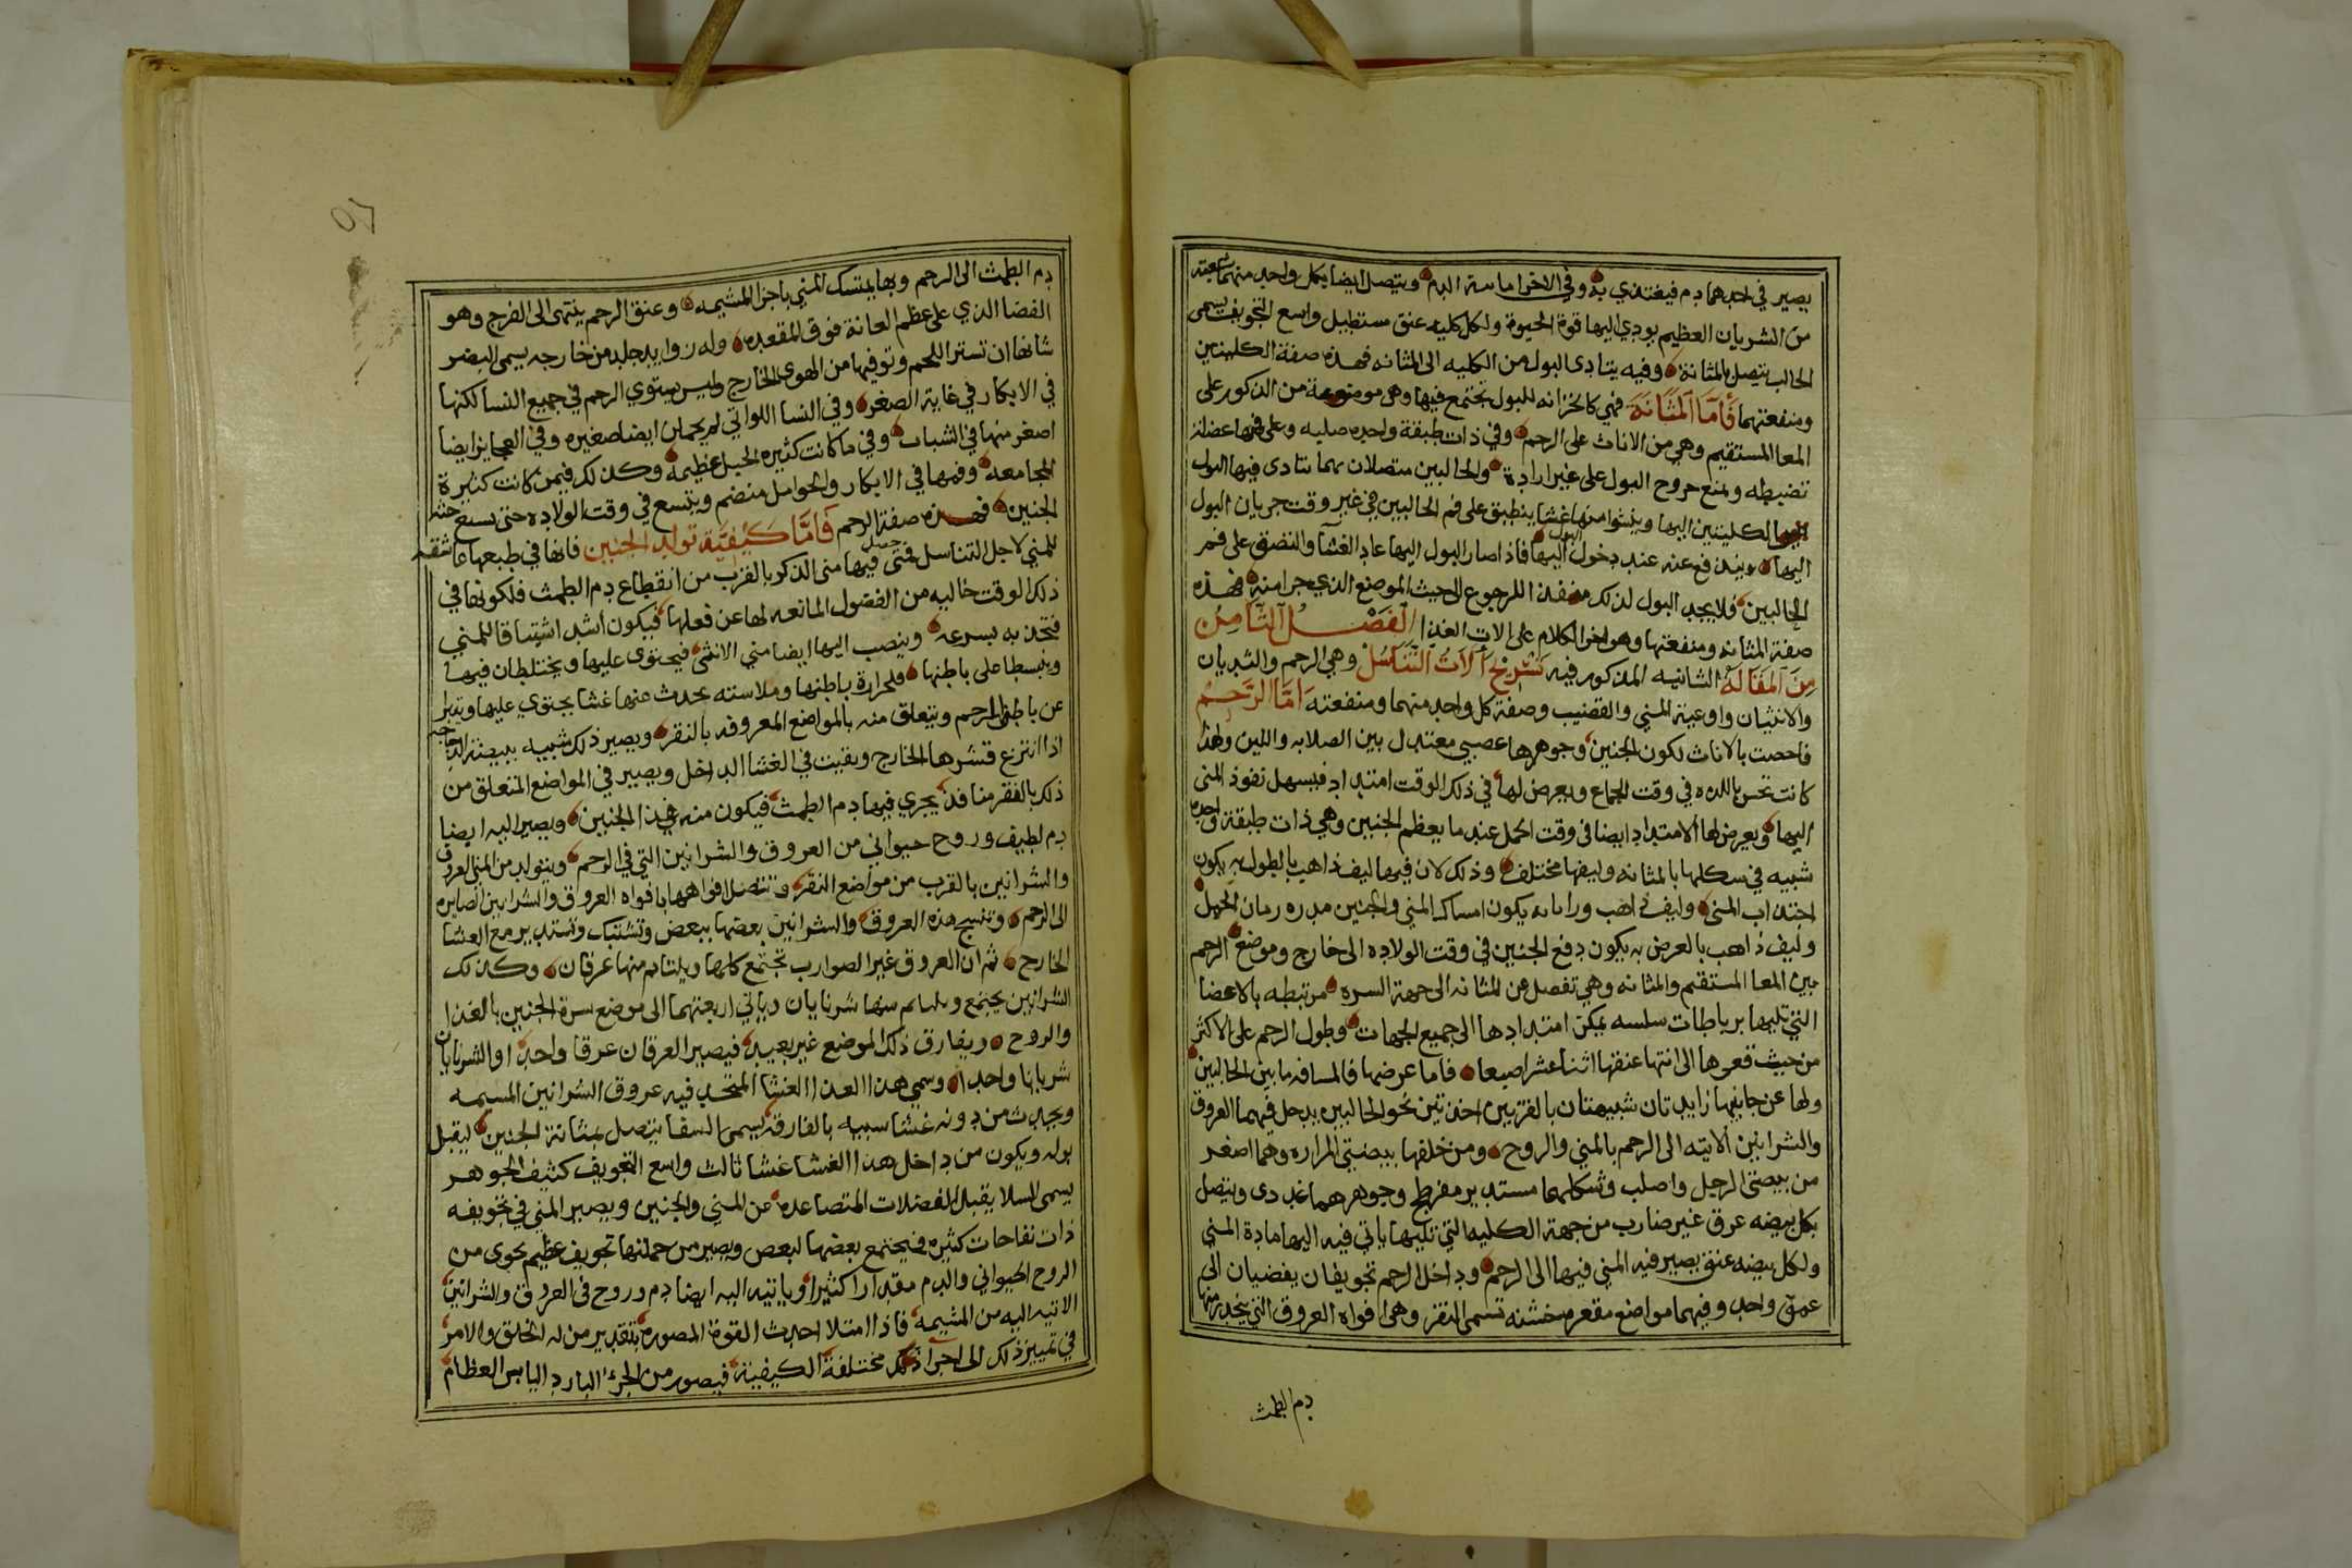 يصير في احدهما دم فيغتذي به وفي الاخر امايية الدم ويتصل ايضا بكل واحد منهما شعبه
من الشريان العظيم يودي اليها قوة الحيوة ولكل كليه عنق مستطيل واسع التجويف يسمى
الحالب يتصل بالمثانة وفيه يتادى البول من الكليه الى المثانه فهذه صفة الكليتين
ومنفعتهما فاما المثانة فهي كالخزانه للبول تجتمع فيها وهي موضوعة من الذكور على
المعا المستقيم وهي من الاناث على الرحم وفي ذات طبقة واحده صلبه وعلى فمها عضلة
تضبطه وتمنع خروج البول على غير ارادة والحالبين متصلان بهما يتادى فيها البول
الكليتين اليها وينشوا منها غشا ينطبق على فم الحالبين في غير وقت جريان البول
اليها ويندفع عنه عند دخول البول اليها فاذا صار البول اليها عاد الغشا والتصق على فم
الحالبين فلا يجد البول لذلك منفذا للرجوع الى حيث الموضع الذي جرا منه فهذه
صفة المثانه ومنفعتها وهو اخر الكلام على الات الغذا الفصل الثامن
من المقالة الثانيه المذكور فيه تشريح آلات التناسل وهي الرحم والثديان
والانثيان واوعية المني والقضيب وصفة كل واحد منهما ومنفعته اما الرحم
فاخصت بالاناث لكون الجنين وجوهرها عصبي معتدل بين الصلابه واللين ولهذا
كانت تحس باللذه في وقت الجماع ويعرض لها في ذلك الوقت امتداد فيسهل نفوذ المنى
اليها ويعرض لها الامتداد ايضا في وقت الحمل عند ما يعظم الجنين وهي ذات طبقة واحده
شبيه في شكلها بالمثانه وليفها مختلف وذلك لان فيها ليف ذاهب بالطول به يكون
اجتذاب المنى وليف ذاهب ورابا به يكون امساك المني والجنين مدره زمان الحمل
وليف ذاهب بالعرض به يكون دفع الجنين في وقت الولاده الى خارج وموضع الرحم
بين المعا المستقيم والمثانه وهي تفضل عن المثانه الى جهة السره مرتبطه بالاعضا
التي تليها برباطات سلسه يمكن امتدادها الى جميع الجهات وطول الرحم على الاكثر
من حيث قعرها الى انتها عنقها اثنا عشر اصبعا فاما عرضها فالمسافه ما بين الحالبين
ولها عن جانبيها زايدتان شبيهتان بالقرنين اخذتين نحو الحالبين يدخل فيهما العروق
والشرانين الاتيه الى الرحم بالمني والروح ومن خلفها بيضتي المراره وهما اصغر
من بيضتي الرجل واصلب وشكلهما مستدير مفرطح وجوهرهما غددى ويتصل
بكل بيضه عرق غير ضارب من جهة الكليه التي تليها ياتي فيه اليها مادة المني
ولكل بيضه عنق يصير فيه المني فيها الى الرحم وداخل الرحم تجويفان يفضيان الى
عمق واحد وفيهما مواضع مقعره خشنه تسمى النقر وهي افواه العروق التي ينحدر منها
دم الطمث
دم الطمث الى الرحم وبها يمتسك المني باجزا المشيمه وعنق الرحم ينتهى الى الفرج وهو
الفضا الذي على عظم العانة فوق المقعده وله زوايد جلد من خارجه يسمى البضر
شانها ان تستر اللحم وتوقيها من الهوى الخارج وليس يستوي الرحم في جميع النسا لكنها
في الابكار في غاية الصغر وفي النسا اللواتي لم يحملن ايضا صغيره وفي العجايز ايضا
اصغر منها في الشباب وفي ما كانت كثيره الحبل عظيمة وكذلك فيمن كانت كثيرة
المجامعه وفمها في الابكار والحوامل منضم ويتسع في وقت الولاده حتى يسع جثة
الجنين فهذه صفة الرحم فاما كيفية تولد الجنين فانها في طبعها عاشقه
للمني لاجل التناسل فمتى حصل فيها منى الذكر بالقرب من انقطاع دم الطمث فلكونها في
ذلك الوقت خاليه من الفضول المانعه لها عن فعلها فيكون اشد اشتياقا للمني
فتجذبه بسرعه وينصب اليها ايضا مني الانثى فيحتوى عليها ويختلطان فيها
وينبسطا على باطنها فلحرارة باطنها وملاسته يحدث عنها غشا يحتوي عليها ويتبرا
عن باطن الرحم ويتعلق منه بالمواضع المعروفه بالنقر ويصير ذلك شبيه ببيضة الدجاجه
اذا انتزع قشرها الخارج وبقيت في الغشا الداخل ويصير في المواضع المتعلق من
ذلك بالفقر منافذ يجري فيها دم الطمث فيكون منه غذا الجنين ويصير اليه ايضا
دم لطيف وروح حيواني من العروق والشرانين التي في الرحم ويتولد من المني العروق
والشرانين بالقرب من مواضع النقر وتتصل افواهها بافواه العروق والشرانين الصايره
الى الرحم وتنسج هذه العروق والشرانين بعضها ببعض وتشتبك وتستدير مع الغشا
الخارج ثم ان العروق غير الضوارب تجتمع كلها ويلتام منها عرقان وكذلك
الشرانين يجتمع ويلتام منها شريانان وياتي اربعتهما الى موضع سرة الجنين بالغذا
والروح ويفارق ذلك الموضع غير بعيد فيصير العرقان عرقا واحدا والشريانان
شريانا واحدا وسمي هذا الغشا المتحد فيه عروق الشرانين المسيمه
ويحدث من دونه غشا شبيه بالفارقة يسمى السفا يتصل بمثانة الجنين ليقبل
بوله ويكون من داخل هذا الغشا غشا ثالث واسع التجويف كثيف الجوهر
يسمى السلا يقبل الفضلات المتصاعده عن المني والجنين ويصير المني في تجويفه
ذات نفاحات كثيره فيجتمع بعضها لبعض ويصير من جملتها تجويف عظيم يحوى من
الروح الحيواني والدم مقدارا كثيرا وياتيه اليه ايضا دم وروح في العروق والشرانين
الاتيه اليه من المشيمة فاذا امتلا احدث القوة المصوره بتقدير من له الخلق والامر
في تمييز ذلك الى اجزا مختلفة الكيفية فيصور من الجزء البارد اليابس العظام